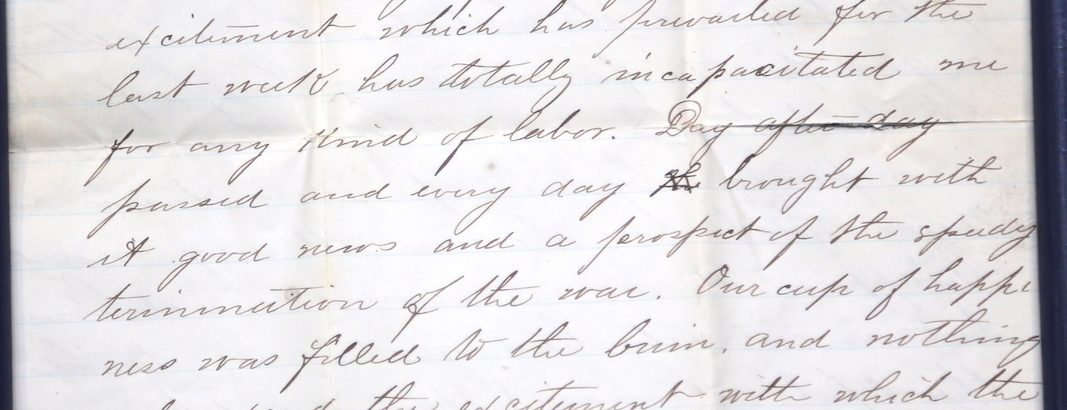 excitement which has prevailed for the
last week has totally incapacitated me
for any kind of labor. Day after day
passed and every day brought with
it good news and a prospect of the speedy
termination of the war. Our cup of happi
ness was filled to the brim, and nothing
the excitement with which the